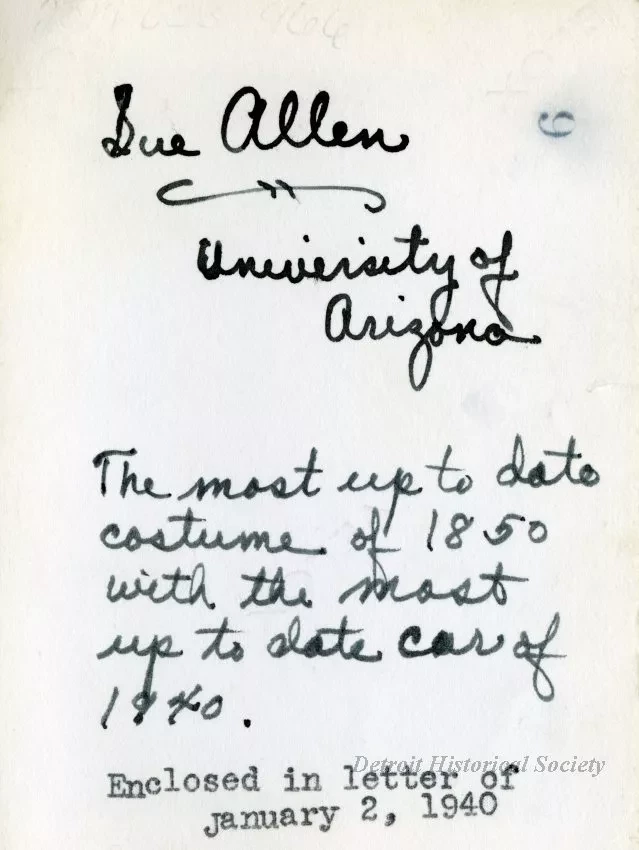 6
Sue Allen
University of
Arizona
The most up to date
costume of 1850
with the most
up to date car of
1940.
Detroit Historical Society
Enclosed in letter of
january 2, 1940